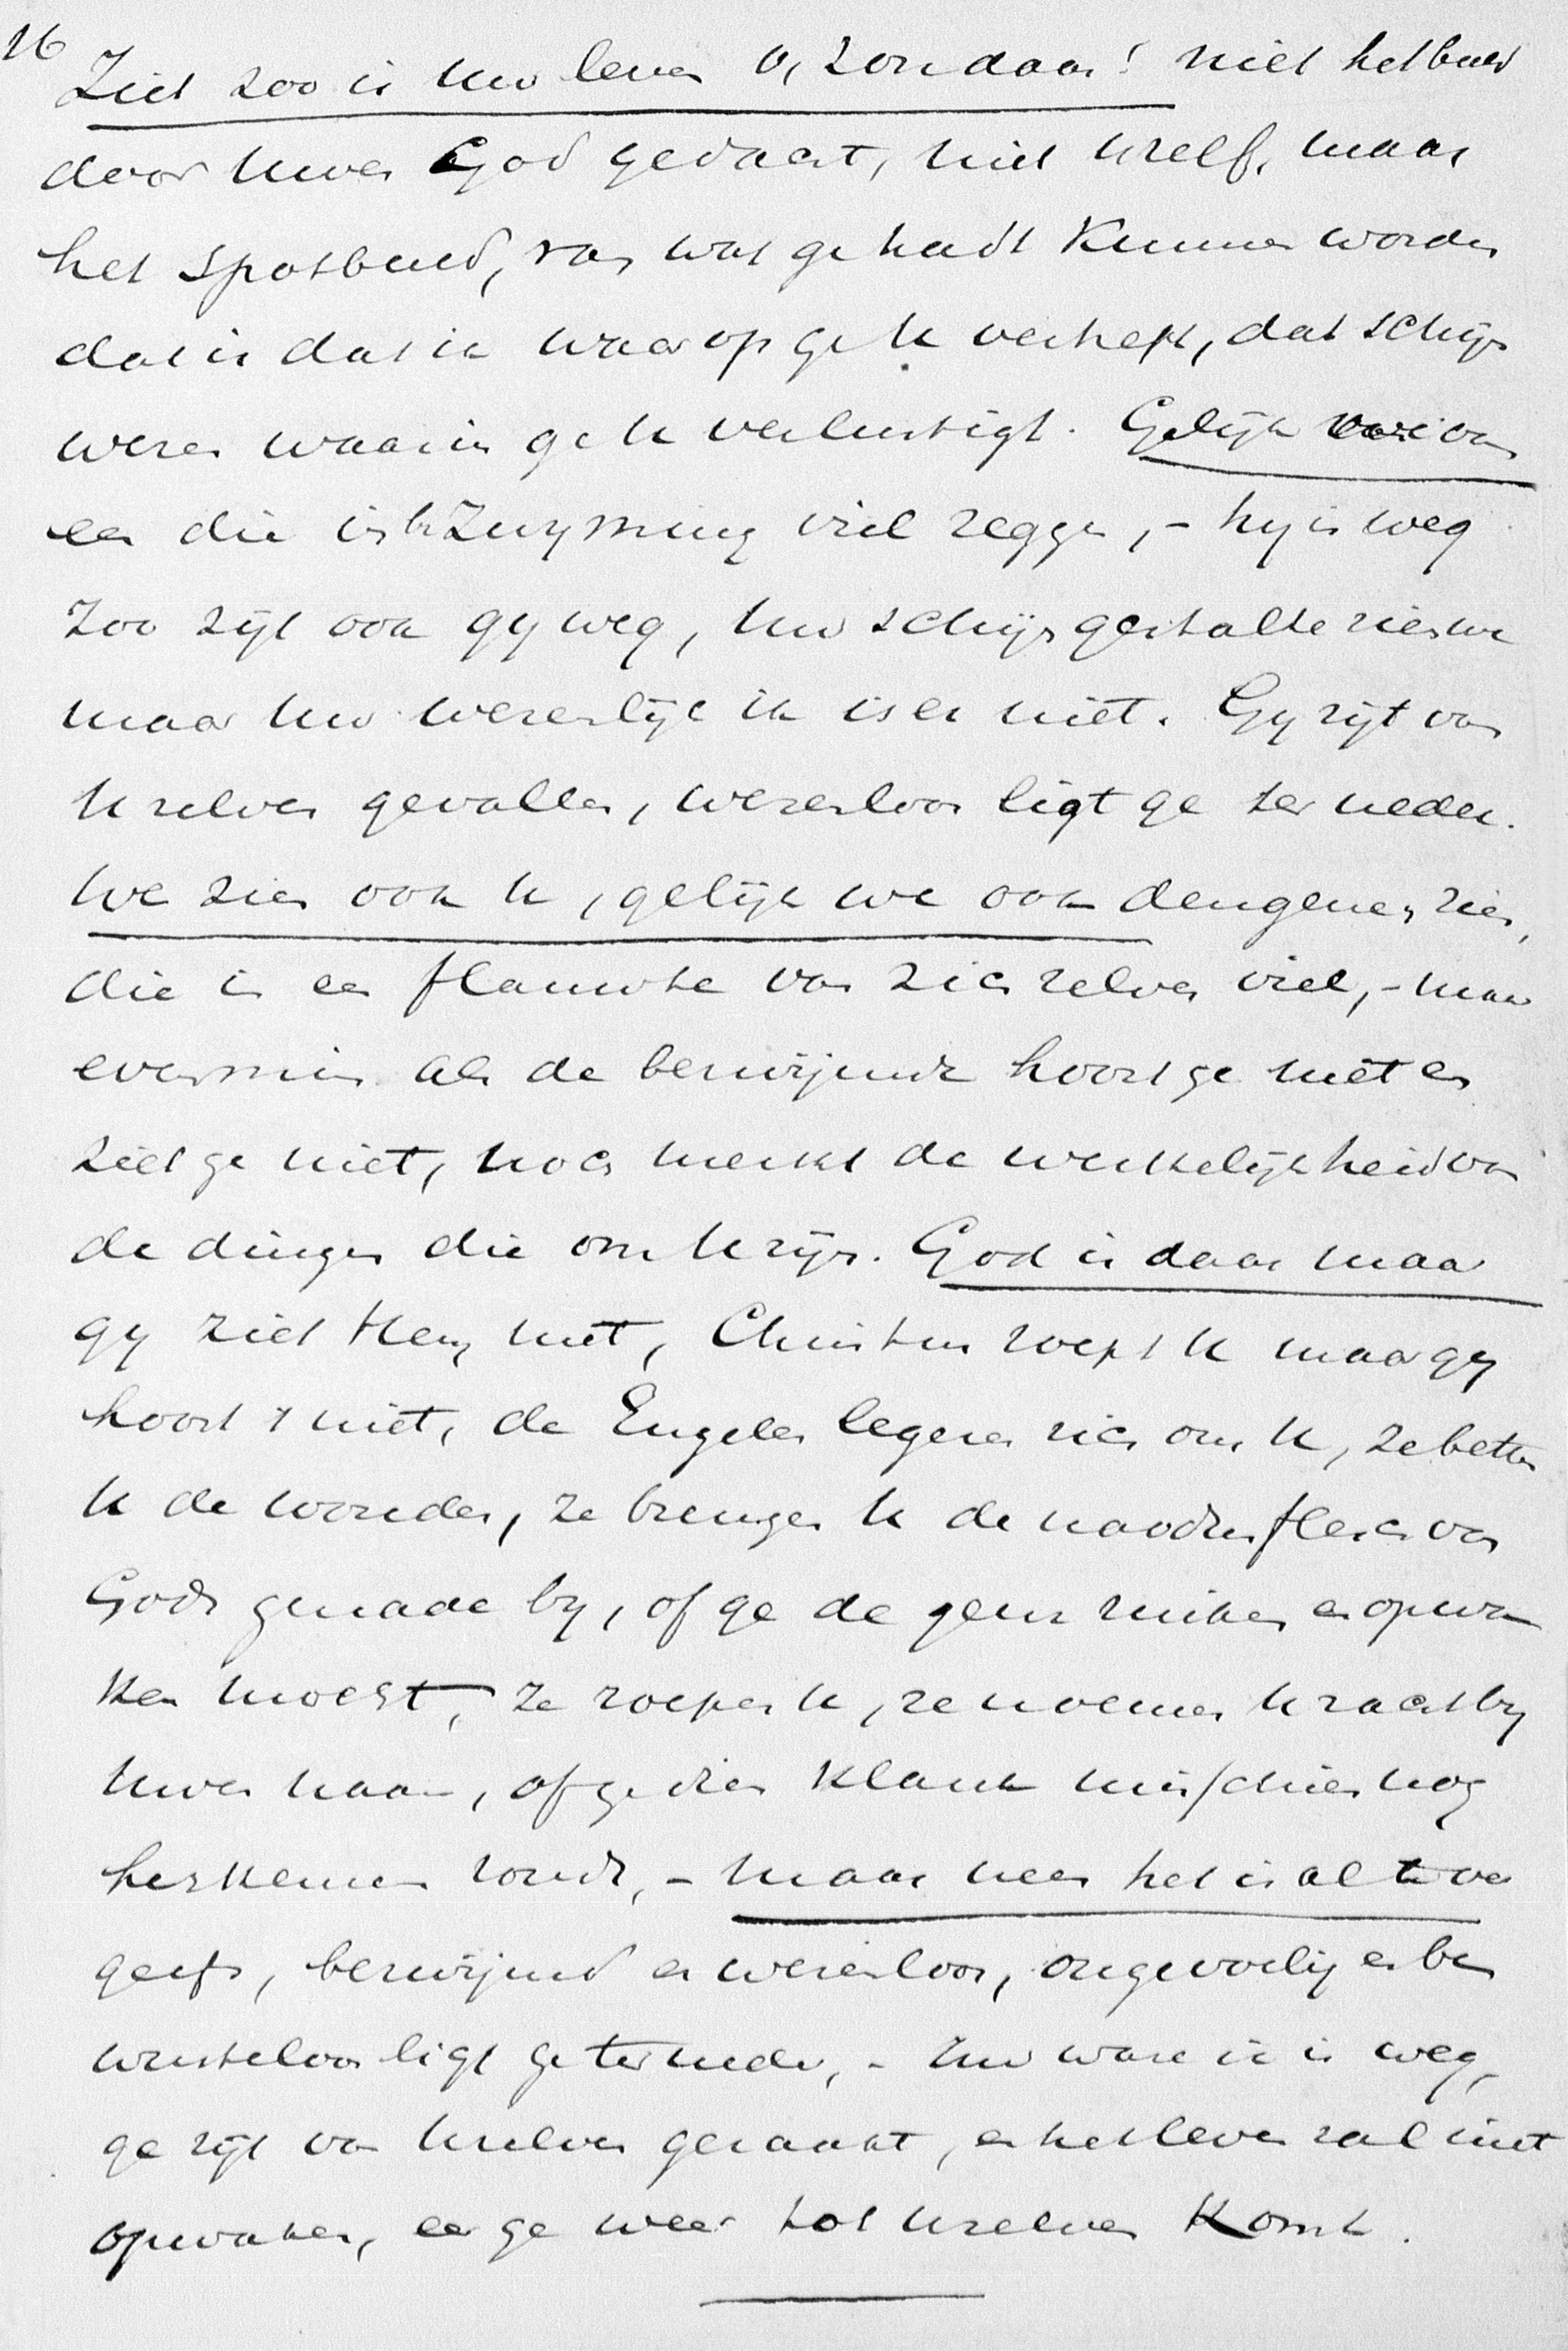 16
Ziet zoo is uw leven o, zondaar! niet het beeld
door uwen God gedacht, niet uzelf, maar
het spotbeeld, van wat ge hadt kunnen worden
dat is dat ik waarop ge u verheft, dat schijn
wezen waarin ge u verlustigt. Gelijk we van
een die in bezwyming viel zeggen, - hy is weg
zoo zijt ook gy weg, uw schijngestalte zien we
maar uw wezenlijk ik is er niet. Gy zijt van
u zelven gevallen, wezenloos ligt ge ter neder.
We zien ook u, gelijk we ook dengenen zien,
die in een flauwte van zich zelven viel, - maar
evenmin als de bezwijmde hoort ge niet en
ziet ge niet, noch merkt de werkelijkheid van
de dingen die om u zijn. God is daar maar
gy ziet Hem niet, Christus roept u maar gy
hoort 't niet, de Engelen legeren zich om u, ze betten
u de wonden, ze brengen u de naodesflesch van
Gods genade by, of ge de geur ruiken en opwa
ken moest, ze roepen u, ze noemen u zacht by
uwen naam, of ge dien klank misschien nog
herkennen zoudt, - maar neen het is al te ver
geefs, bezwijmd en wezenloos, ongevoelig en be
wusteloos ligt ge ter neder, - uw ware ik is weg,
ge zijt van uzelven geraakt, en het leven zal niet
opwaken, eer ge weer tot uzelven komt.